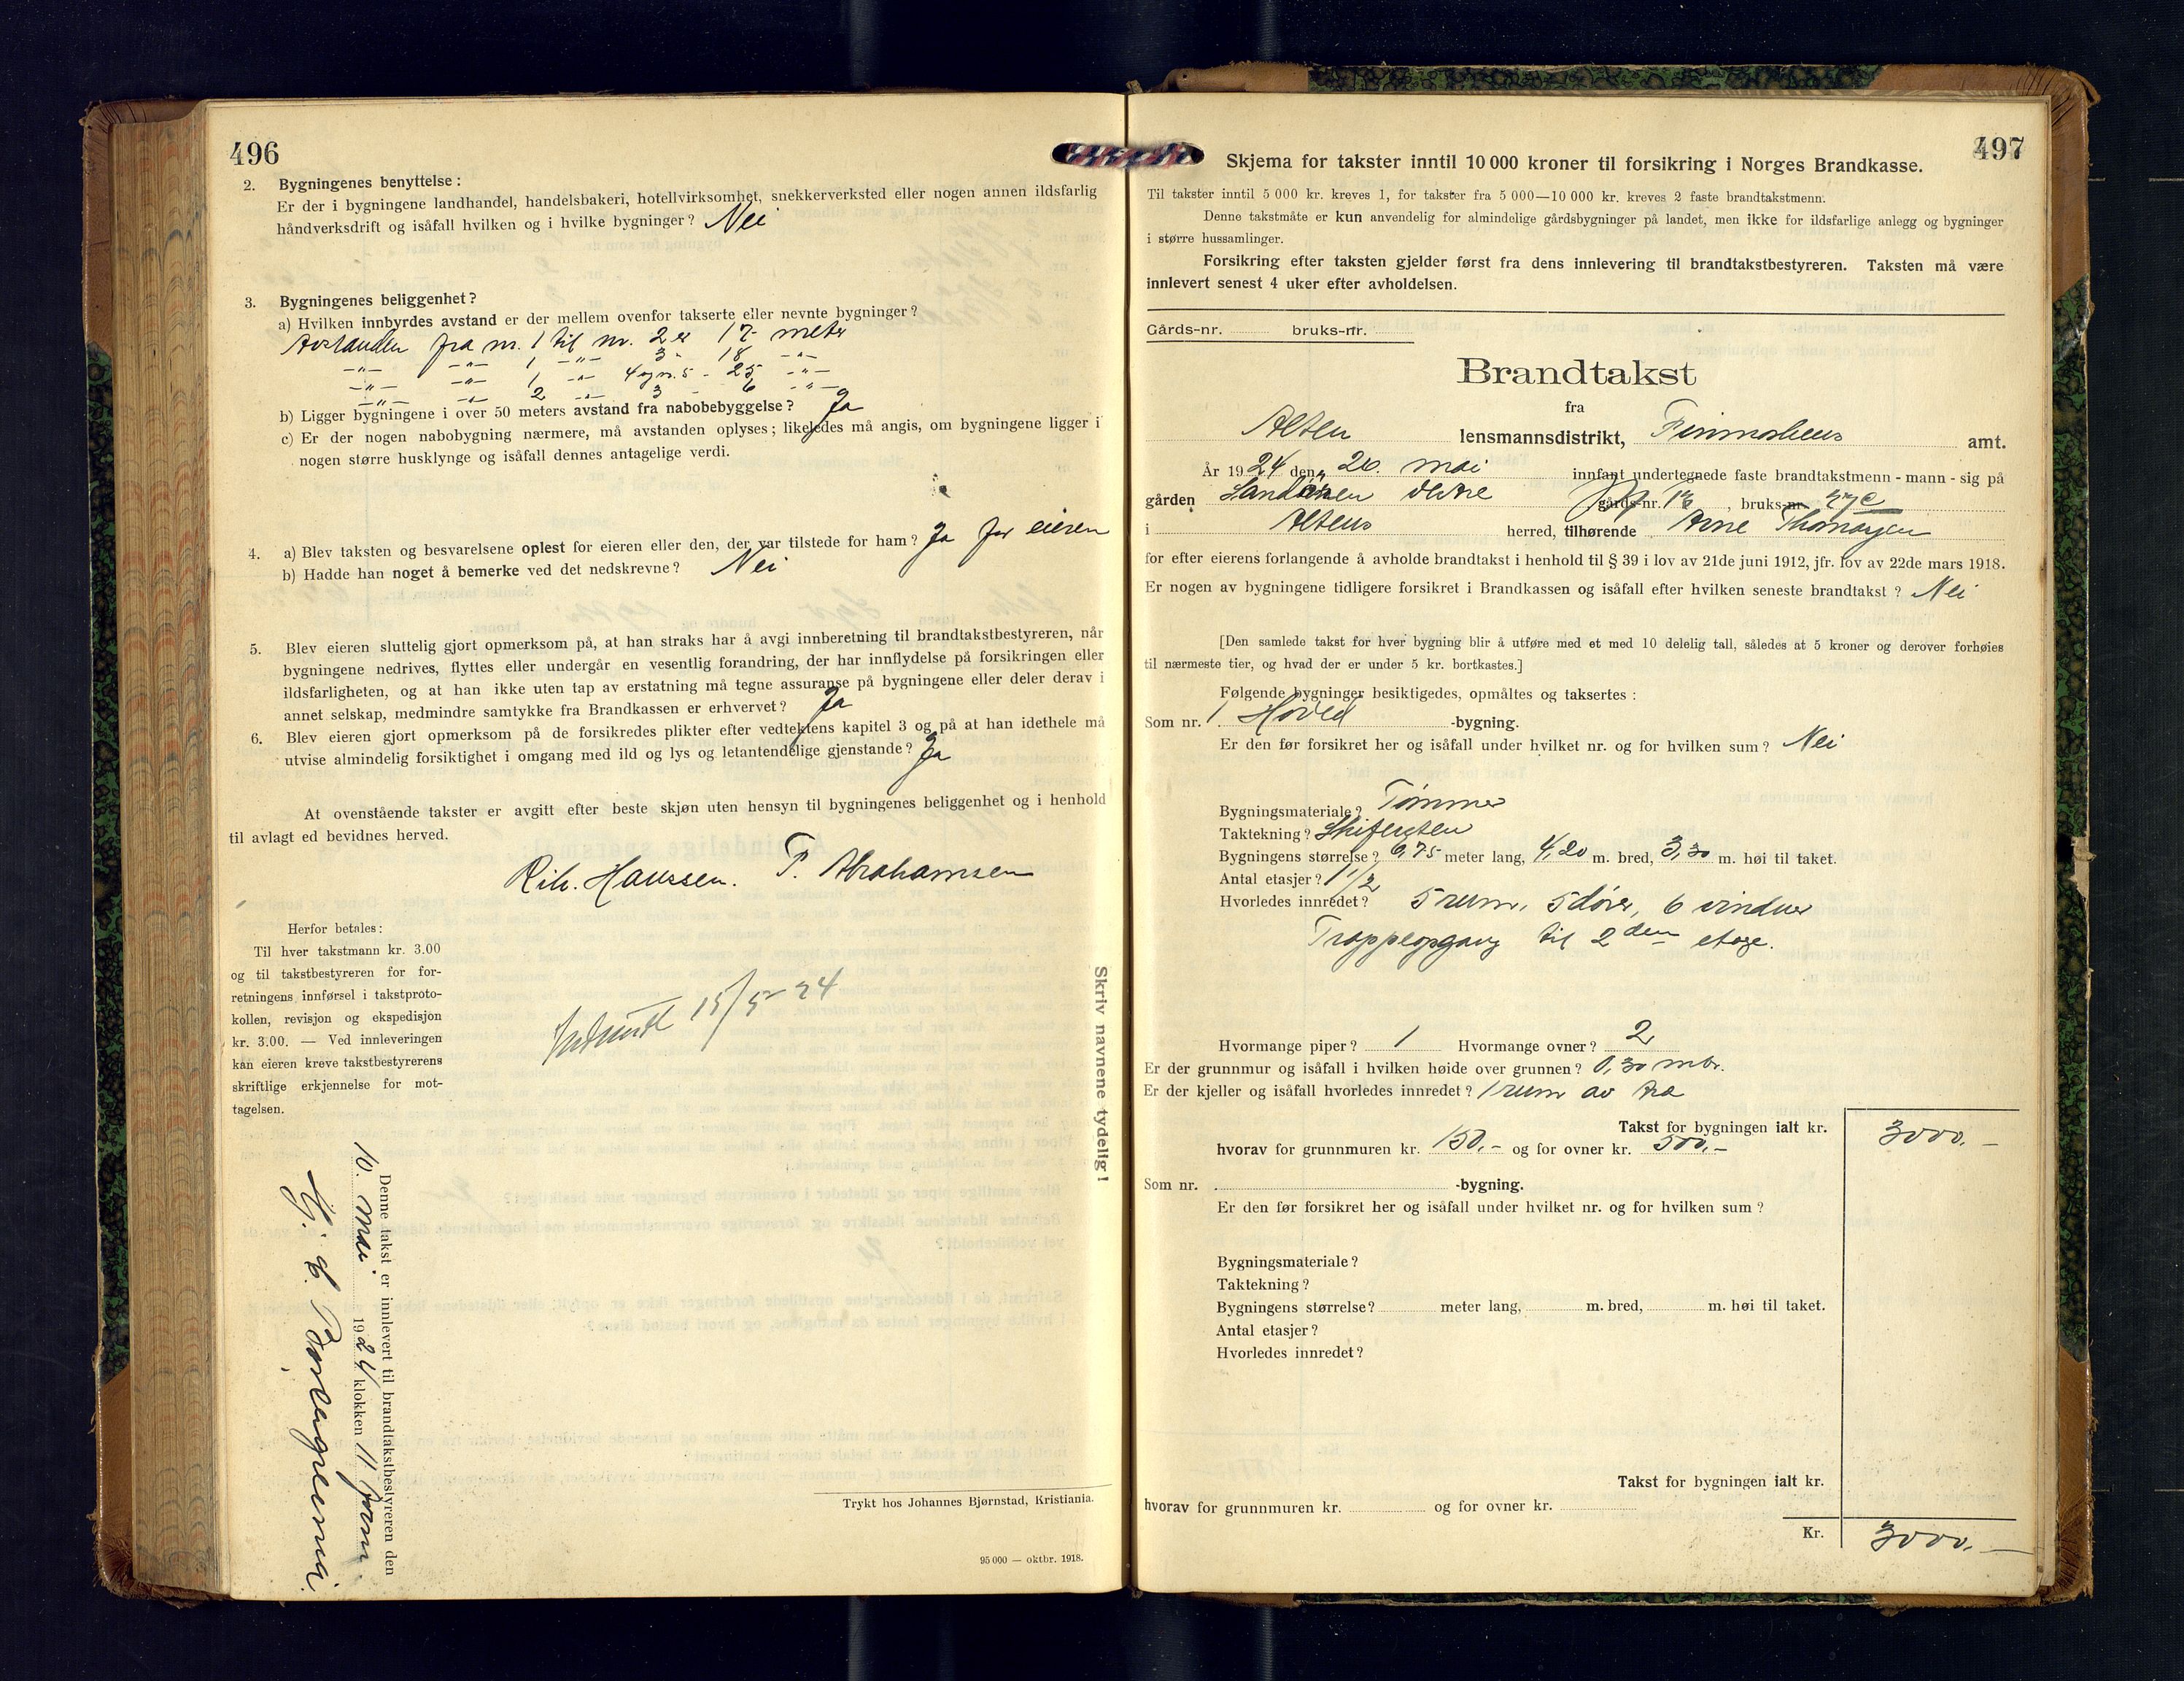 496
2. Bygningenes benyttelse:
Er der i bygningene landhandel, handelsbakeri, hotellvirksomhet, snekkerverksted eller nogen annen ildsfarlig
håndverksdrift og isåfall hvilken og i hvilke bygninger? Nei
3. Bygningenes beliggenhet?
a) Hvilken innbyrdes avstand er der mellem ovenfor takserte eller nevnte bygninger?
Avstanden fra nr. 1 til nr. 2 er 17 meter
-"- -"- 1 -"- 3 - 18 -"-
-"- -"- 1 -"- 4 og nr. 5 - 25 -"-
-"- -"- 2 -"- 3 - 6 -"-
b) Ligger bygningene i over 50 meters avstand fra nabobebyggelse? Ja
c) Er der nogen nabobygning nærmere, må avstanden oplyses; likeledes må angis, om bygningene ligger i
nogen større husklynge og isåfall dennes antagelige verdi.
4. a) Blev taksten og besvarelsene oplest for eieren eller den, der var tilstede for ham? Ja for eieren
b) Hadde han noget å bemerke ved det nedskrevne? Nei
5. Blev eieren sluttelig gjort opmerksom på, at han straks har å avgi innberetning til brandtakstbestyreren, når
bygningene nedrives, flyttes eller undergår en vesentlig forandring, der har innflydelse på forsikringen eller
ildsfarligheten, og at han ikke uten tap av erstatning må tegne assuranse på bygningene eller deler derav i
annet selskap, medmindre samtykke fra Brandkassen er erhvervet? Ja
6. Blev eieren gjort opmerksom på de forsikredes plikter efter vedtektens kapitel 3 og på at han idethele må
utvise almindelig forsiktighet i omgang med ild og lys og letantendelige gjenstande? Ja
At ovenstående takster er avgitt efter beste skjøn uten hensyn til bygningenes beliggenhet og i henhold
til avlagt ed bevidnes herved.
Rih. Hanssen. P. Abrahamsen
Herfor betales:
Til hver takstmann kr. 3.00
og til takstbestyreren for for-
retningens innførsel i takstproto-
kollen, revisjon og ekspedisjon
kr. 3.00. — Ved innleveringen
kan eieren kreve takstbestyrerens
skriftlige erkjennelse for mot-
tagelsen.
15/5 24
Skriv navnene tydelig!
Denne takst er innlevert til brandtakstbestyreren den
10. mai 1924 klokken 11 form.
Trykt hos Johannes Bjørnstad, Kristiania.
95 000 — oktbr. 1918.
497
Skjema for takster inntil 10 000 kroner til forsikring i Norges Brandkasse.
Til takster inntil 5 000 kr. kreves 1, for takster fra 5 000—10 000 kr. kreves 2 faste brandtakstmenn.
Denne takstmåte er kun anvendelig for almindelige gårdsbygninger på landet, men ikke for ildsfarlige anlegg og bygninger
i større hussamlinger.
Forsikring efter taksten gjelder først fra dens innlevering til brandtakstbestyreren. Taksten må være
innlevert senest 4 uker efter avholdelsen.
Gårds-nr. bruks-nr.
Brandtakst
fra
Alten lensmannsdistrikt, Finmarkens amt.
År 1924 den 26. mai innfant undertegnede faste brandtakstmenn - mann - sig på
gården gårds-nr. , bruks-nr.
i Altens herred, tilhørende Arne Thomasjen
for efter eierens forlangende å avholde brandtakst i henhold til § 39 i lov av 21de juni 1912, jfr. lov av 22de mars 1918.
Er nogen av bygningene tidligere forsikret i Brandkassen og isåfall efter hvilken seneste brandtakst? Nei
[Den samlede takst for hver bygning blir å utføre med et med 10 delelig tall, således at 5 kroner og derover forhøies
til nærmeste tier, og hvad der er under 5 kr. bortkastes.]
Følgende bygninger besiktigedes, opmåltes og taksertes:
Som nr. 1 Hoved -bygning.
Er den før forsikret her og isåfall under hvilket nr. og for hvilken sum? Nei
Bygningsmateriale? Tømmer
Taktekning? Skifersten
Bygningens størrelse? 6,75 meter lang, 4,20 m. bred, 3,30 m. høi til taket.
Antal etasjer? 1 1/2
Hvorledes innredet? 5 rum, 5 dører, 6 vinduer
Trappeopgang til 2den etage.
Hvormange piper? 1 Hvormange ovner? 2
Er der grunnmur og isåfall i hvilken høide over grunnen? 0,30 mtr.
Er der kjeller og isåfall hvorledes innredet? 1 rum av træ
Takst for bygningen ialt kr. 3000.-
hvorav for grunnmuren kr. 150.- og for ovner kr. 500.-
Som nr. -bygning.
Er den før forsikret her og isåfall under hvilket nr. og for hvilken sum?
Bygningsmateriale?
Taktekning?
Bygningens størrelse? meter lang, m. bred, m. høi til taket.
Antal etasjer?
Hvorledes innredet?
Takst for bygningen ialt kr.
hvorav for grunnmuren kr. og for ovner kr.
Kr. 3000.-